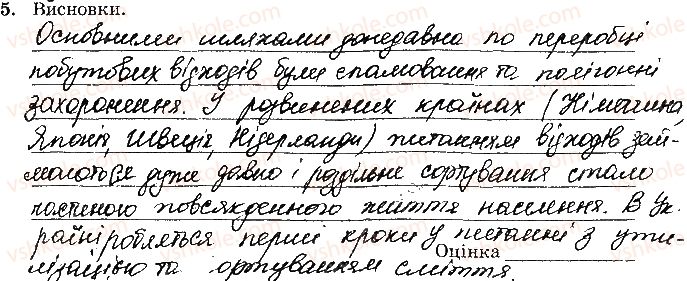 5. Висновки.
Основними шляхами донедавна по переробці
побутових відходів були спалювання та полігонні
захоронення. У розвинених країнах (Німеччина,
Японія, Швеція, Нідерланди) питанням відходів зай-
малотся дуже давно і роздільне сортування стало
частиною повсякденного життя населення. В Ук-
раїні робляться перші кроки у питанні з ути-
лізацією та сортуванням сміття.
Оцінка